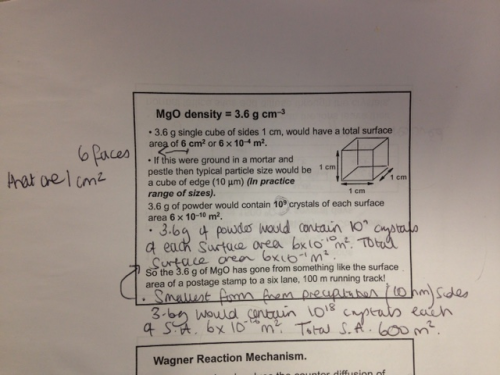 MgO density = 3.6 g cm⁻³
• 3.6 g single cube of sides 1 cm, would have a total surface
area of 6 cm² or 6 x 10⁻⁴ m².
6 faces
that are 1 cm²
• If this were ground in a mortar and
pestle then typical particle size would be
a cube of edge (10 µm) (In practice
range of sizes).
1 cm
1 cm
1 cm
3.6 g of powder would contain 10⁹ crystals of each surface
area 6 x 10⁻¹⁰ m².
• 3.6g of powder would contain 10⁹ crystals
of each surface area 6x10⁻¹⁰m². Total
surface area 6x10⁻¹m².
So the 3.6 g of MgO has gone from something like the surface
area of a postage stamp to a six lane, 100 m running track!
• Smallest form from precipitation (10 nm) sides
3.6g would contain 10¹⁸ crystals each
of S.A. 6x10⁻¹⁶m². Total S.A. 600 m².
Wagner Reaction Mechanism.